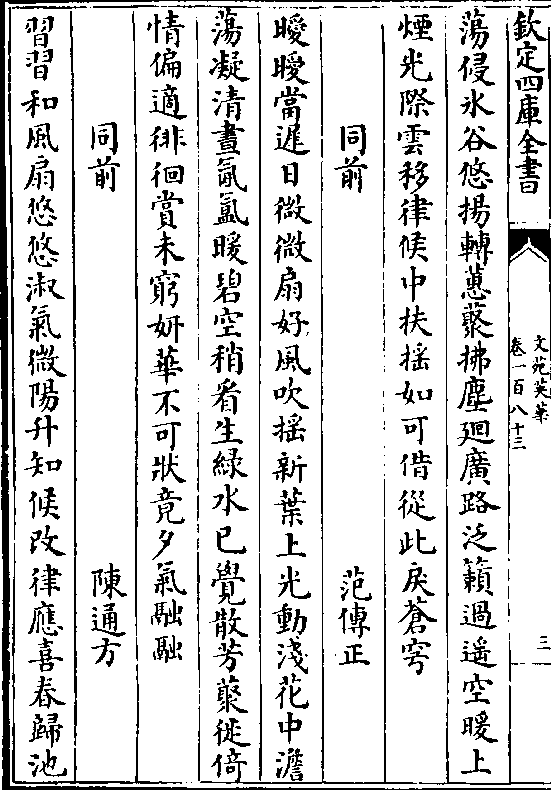 欽定四庫全書
文苑英華
卷一百八十三
三
蕩侵氷谷悠揚轉蕙藂拂塵廻廣路泛籟過遥空暖上
煙光際雲移律候中扶揺如可借從此戾蒼穹
同前
范傳正
曖曖當遲日微微扇好風吹揺新葉上光動淺花中澹
蕩凝清晝氤氲暖碧空稍看生緑水已覺散芳藂徙倚
情偏適徘徊賞未窮妍華不可狀竟夕氣融融
同前
陳通方
習習和風扇悠悠淑氣微陽升知候改律應喜春歸池